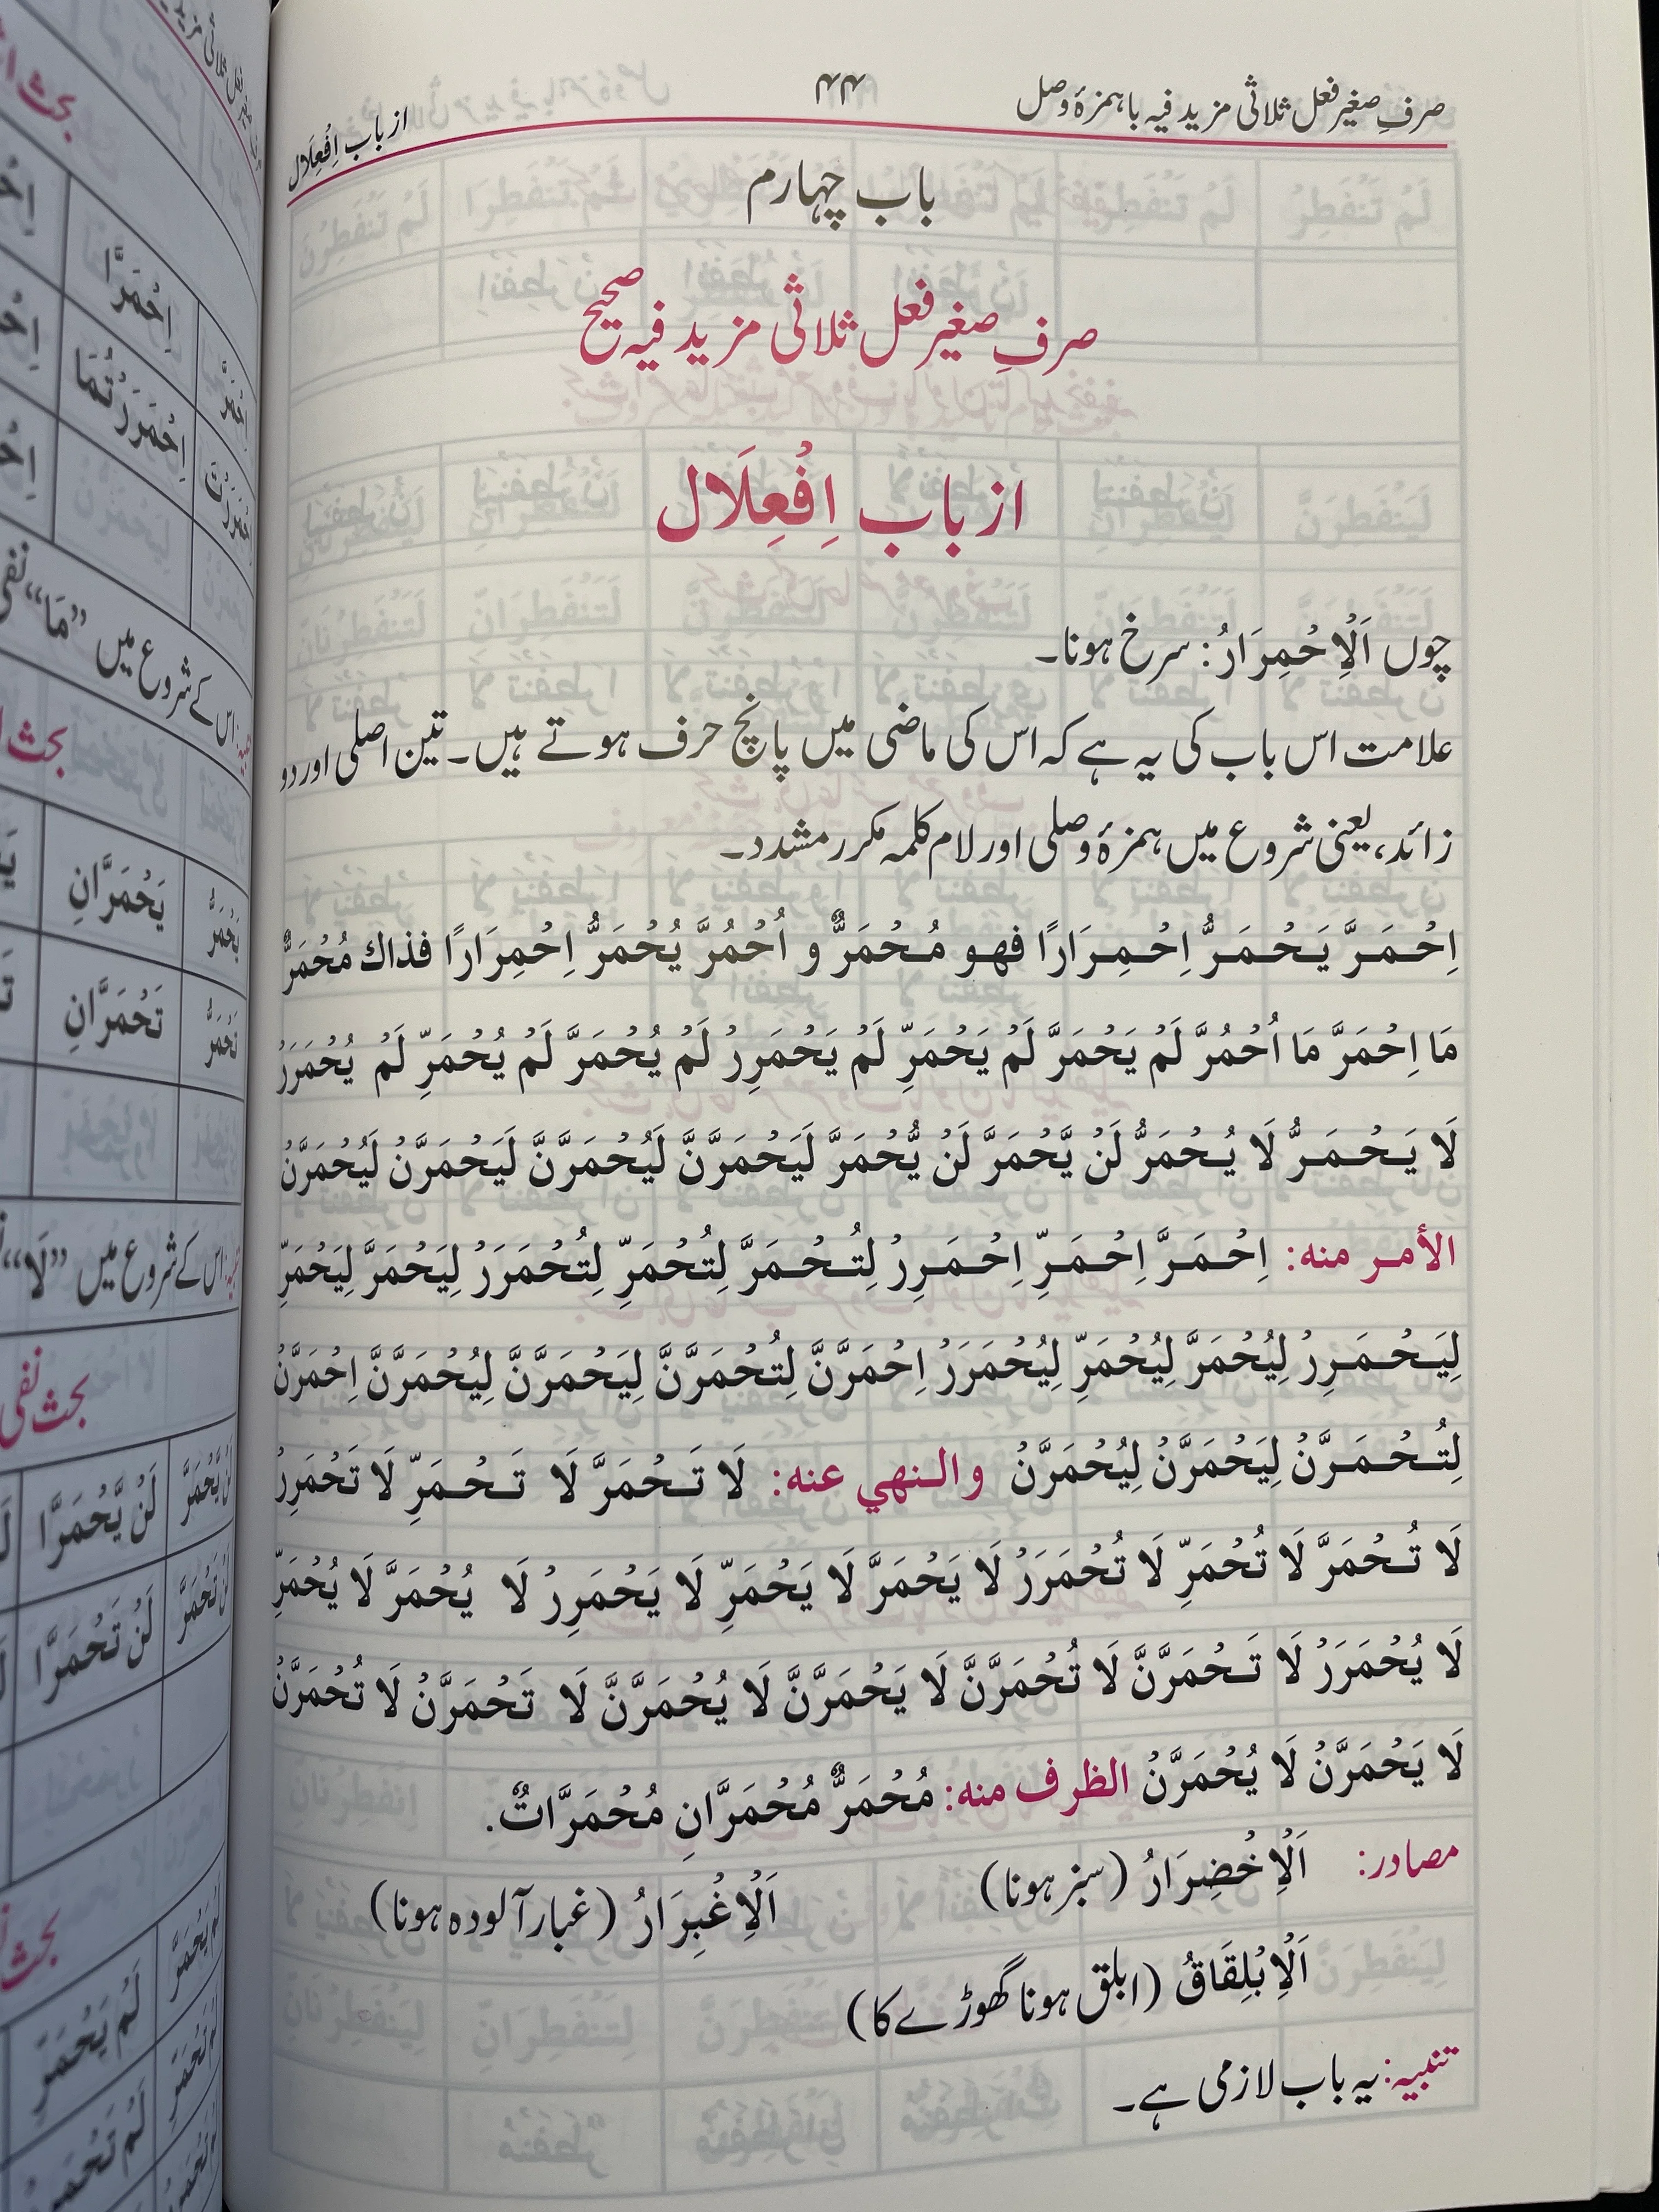 صرفِ صغیر فعل ثلاثی مزید فیہ با ہمزۂ وصل
۴۴
از باب اِفْعِلَال
باب چہارم
صرفِ صغیر فعل ثلاثی مزید فیہ صحیح
از باب اِفْعِلَال
چوں اَلْاِحْمِرَارُ: سرخ ہونا۔
علامت اس باب کی یہ ہے کہ اس کی ماضی میں پانچ حرف ہوتے ہیں۔ تین اصلی اور دو
زائد، یعنی شروع میں ہمزۂ وصلی اور لام کلمہ مکرر مشدد۔
اِحْمَرَّ يَحْمَرُّ اِحْمِرَارًا فهو مُحْمَرٌّ و اُحْمُرَّ يُحْمَرُّ اِحْمِرَارًا فذاك مُحْمَرٌّ
مَا اِحْمَرَّ مَا اُحْمُرَّ لَمْ يَحْمَرَّ لَمْ يَحْمَرِّ لَمْ يَحْمَرِرْ لَمْ يُحْمَرَّ لَمْ يُحْمَرِّ لَمْ يُحْمَرَرْ
لَا يَحْمَرُّ لَا يُحْمَرُّ لَنْ يَّحْمَرَّ لَنْ يُّحْمَرَّ لَيَحْمَرَّنَّ لَيُحْمَرَّنَّ لَيَحْمَرَّنْ لَيُحْمَرَّنْ
الأمر منه: اِحْمَرَّ اِحْمَرِّ اِحْمَرِرْ لِتُحْمَرَّ لِتُحْمَرِّ لِتُحْمَرَرْ لِيَحْمَرَّ لِيَحْمَرِّ
لِيَحْمَرِرْ لِيُحْمَرَّ لِيُحْمَرِّ لِيُحْمَرَرْ اِحْمَرَّنَّ لِتُحْمَرَّنَّ لِيَحْمَرَّنَّ لِيُحْمَرَّنَّ اِحْمَرَّنْ
لِتُحْمَرَّنْ لِيَحْمَرَّنْ لِيُحْمَرَّنْ والنهي عنه: لَا تَحْمَرَّ لَا تَحْمَرِّ لَا تَحْمَرِرْ
لَا تُحْمَرَّ لَا تُحْمَرِّ لَا تُحْمَرَرْ لَا يَحْمَرَّ لَا يَحْمَرِّ لَا يَحْمَرِرْ لَا يُحْمَرَّ لَا يُحْمَرِّ
لَا يُحْمَرَرْ لَا تَحْمَرَّنَّ لَا تُحْمَرَّنَّ لَا يَحْمَرَّنَّ لَا يُحْمَرَّنَّ لَا تَحْمَرَّنْ لَا تُحْمَرَّنْ
لَا يَحْمَرَّنْ لَا يُحْمَرَّنْ الظرف منه: مُحْمَرٌّ مُحْمَرَّانِ مُحْمَرَّاتٌ.
مصادر: اَلْاِخْضِرَارُ (سبز ہونا) اَلْاِغْبِرَارُ (غبار آلودہ ہونا)
اَلْاِبْلِقَاقُ (ابلق ہونا گھوڑے کا)
تنبیہ: یہ باب لازمی ہے۔